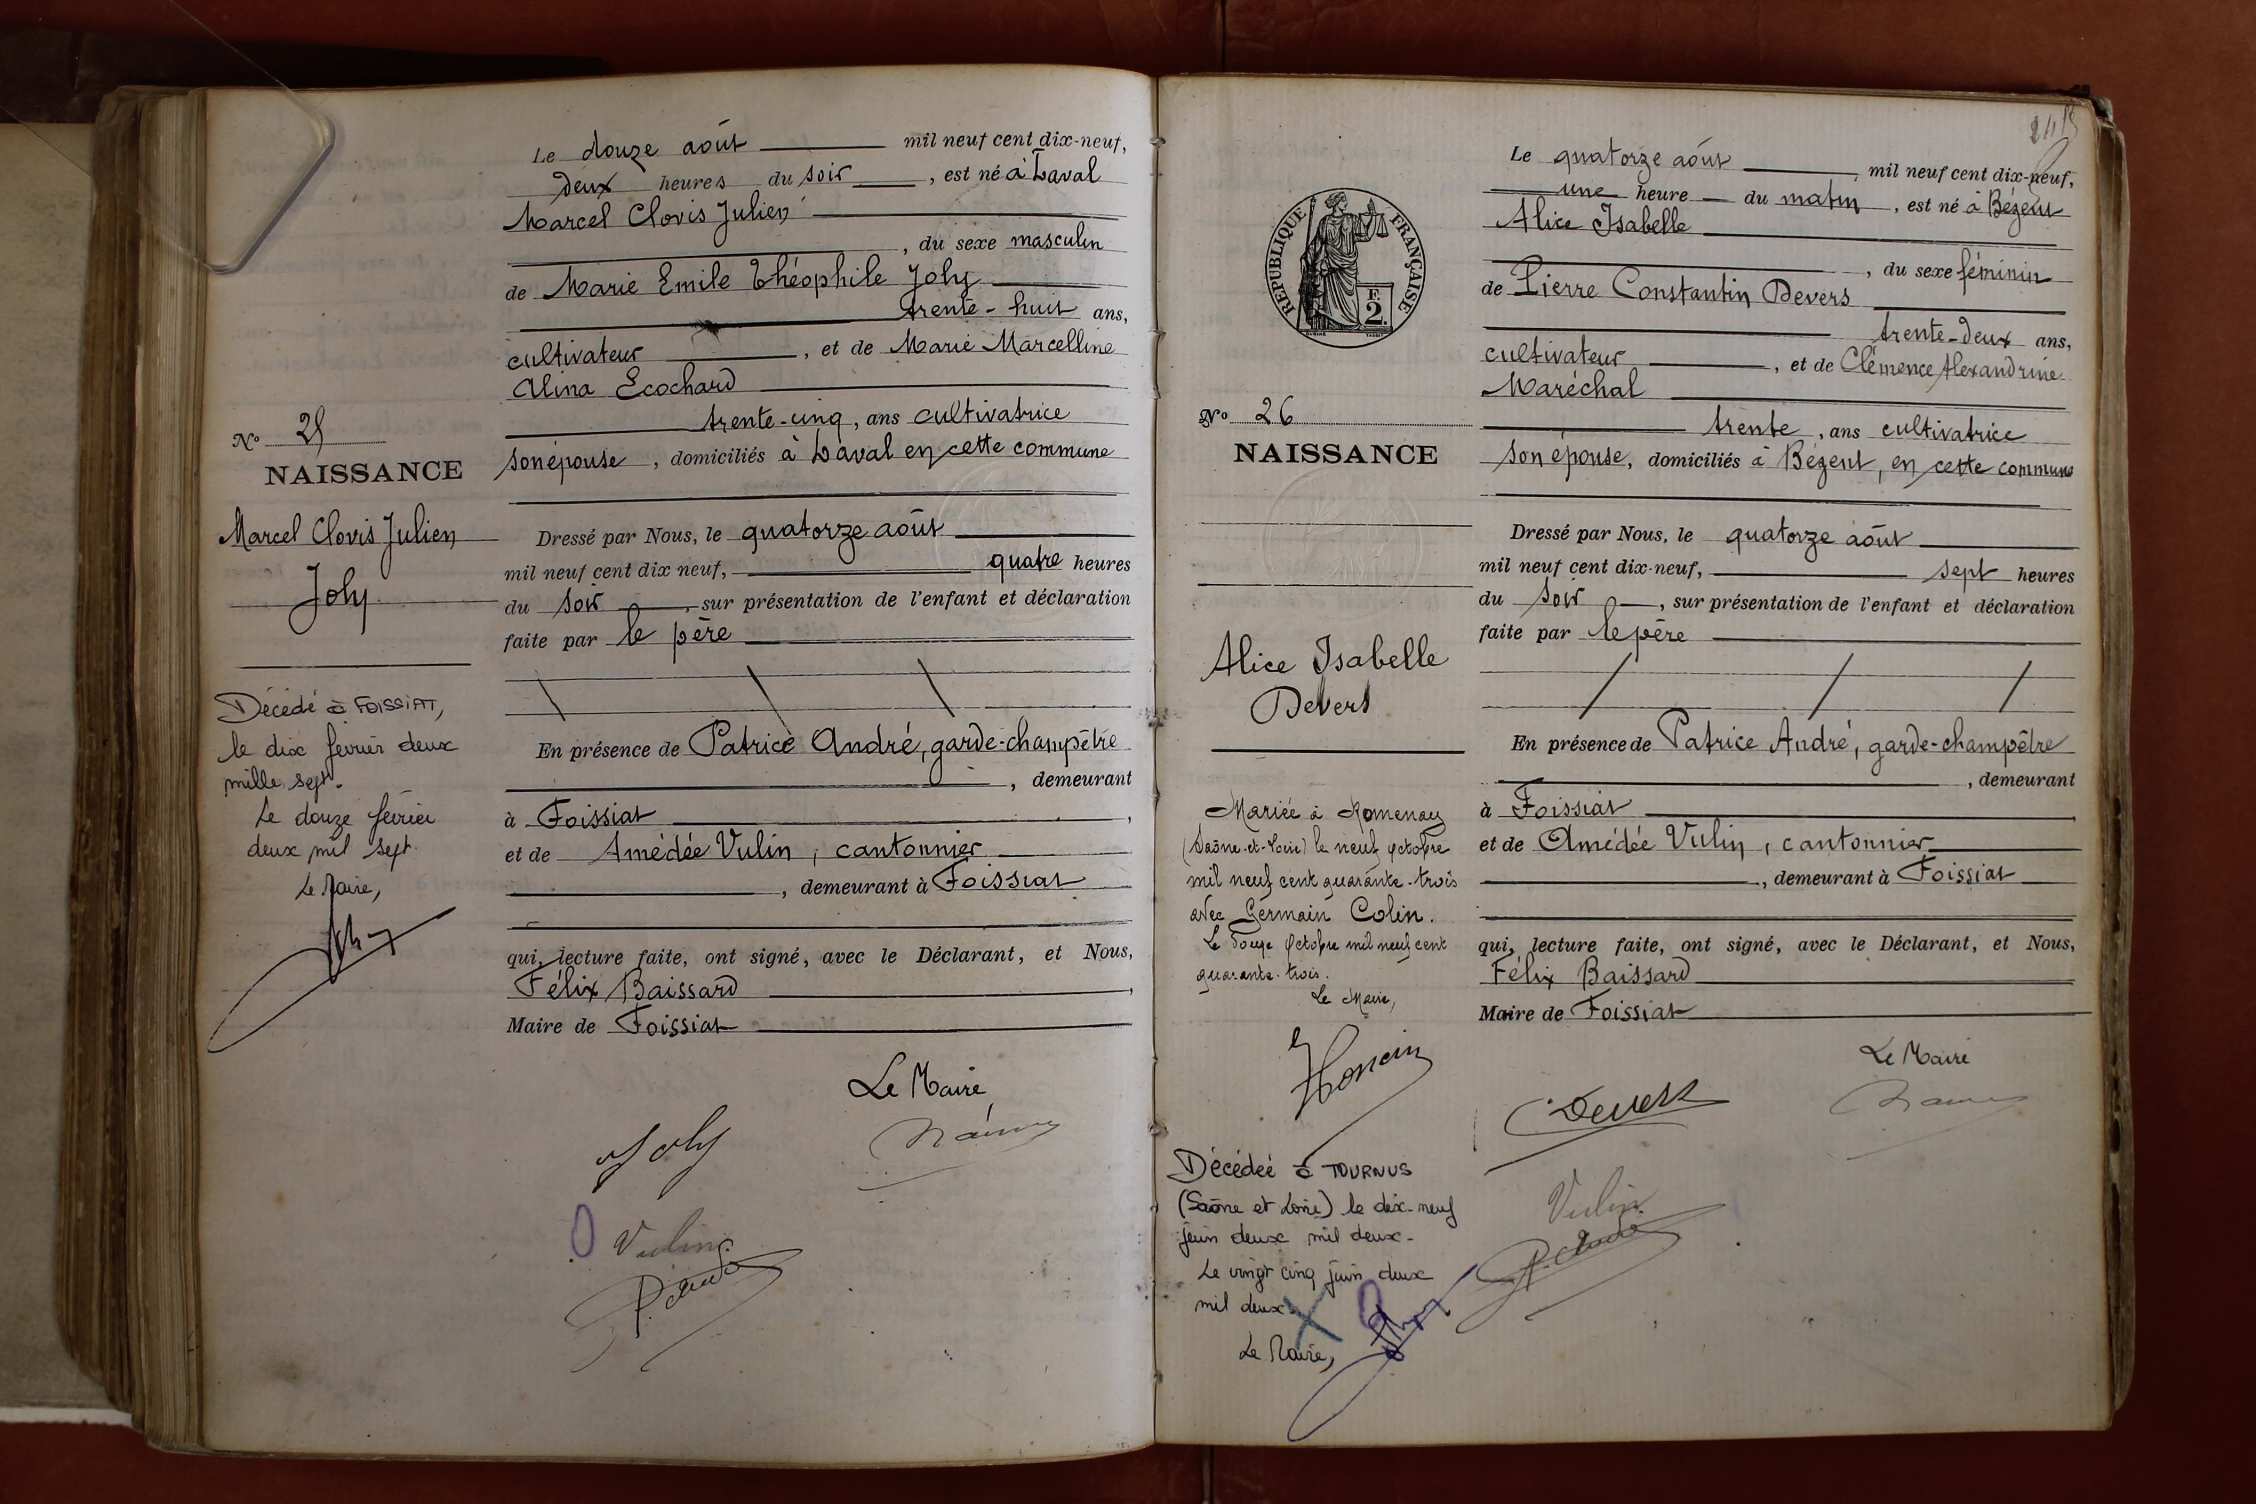 Le douze août mil neuf cent dix-neuf,
deux heures du soir, est né à Laval
Marcel Clovis Julien
, du sexe masculin
de Marie Emile Théophile Joly
trente-huit ans,
cultivateur, et de Marie Marcelline
Alina Ecochard
trente-cinq, ans cultivatrice
son épouse, domiciliés à Laval en cette commune
No 25
NAISSANCE
Marcel Clovis Julien
Joly
Dressé par Nous, le quatorze août
mil neuf cent dix neuf, quatre heures
du soir, sur présentation de l'enfant et déclaration
faite par le père
En présence de Patrice André, garde-champêtre
, demeurant
à Foissiat,
et de Amédée Vulin, cantonnier
, demeurant à Foissiat
qui, lecture faite, ont signé, avec le Déclarant, et Nous,
Félix Baissard,
Maire de Foissiat
Le Maire
Joly
Vulin
Décédé à FOISSIAT,
le dix février deux
mille sept.
Le douze février
deux mil sept.
Le Maire,
Le quatorze août mil neuf cent dix-neuf,
une heure du matin, est né à Bézent
Alice Isabelle
, du sexe féminin
de Pierre Constantin Devers
trente-deux ans,
cultivateur, et de Clémence Alexandrine
Maréchal
trente, ans cultivatrice
son épouse, domiciliés à Bézent, en cette commune
REPUBLIQUE FRANÇAISE
F.
2.
No 26
NAISSANCE
Alice Isabelle
Devers
Dressé par Nous, le quatorze août
mil neuf cent dix-neuf, sept heures
du soir, sur présentation de l'enfant et déclaration
faite par le père
En présence de Patrice André, garde-champêtre
, demeurant
à Foissiat
et de Amédée Vulin, cantonnier
, demeurant à Foissiat
qui, lecture faite, ont signé, avec le Déclarant, et Nous,
Félix Baissard
Maire de Foissiat
Le Maire
Devers
Vulin
Mariée à Romenay
(Saône-et-Loire) le neuf octobre
mil neuf cent quarante-trois
avec Germain Colin.
Le douze octobre mil neuf cent
quarante-trois.
Le Maire,
Décédée à TOURNUS
(Saône et Loire) le dix-neuf
juin deux mil deux-
Le vingt cinq juin deux
mil deux.
Le Maire,